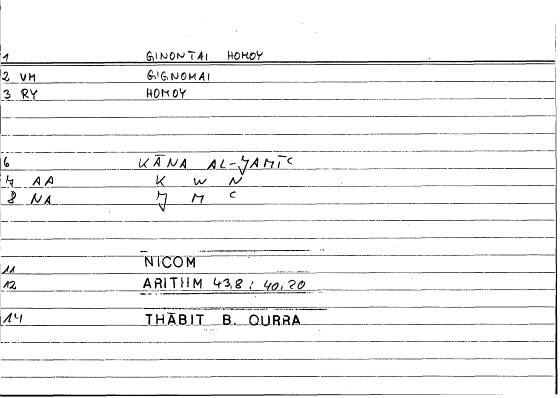 1 GINONTAI HOMOY
2 VM GIGNOMAI
3 RY HOMOY
6 KĀNA AL-ǦAMĪC
7 AA K W N
8 NA Ǧ M C
11 NICOM
12 ARITHM 43,8 : 40,20
14 THĀBIT B. QURRA